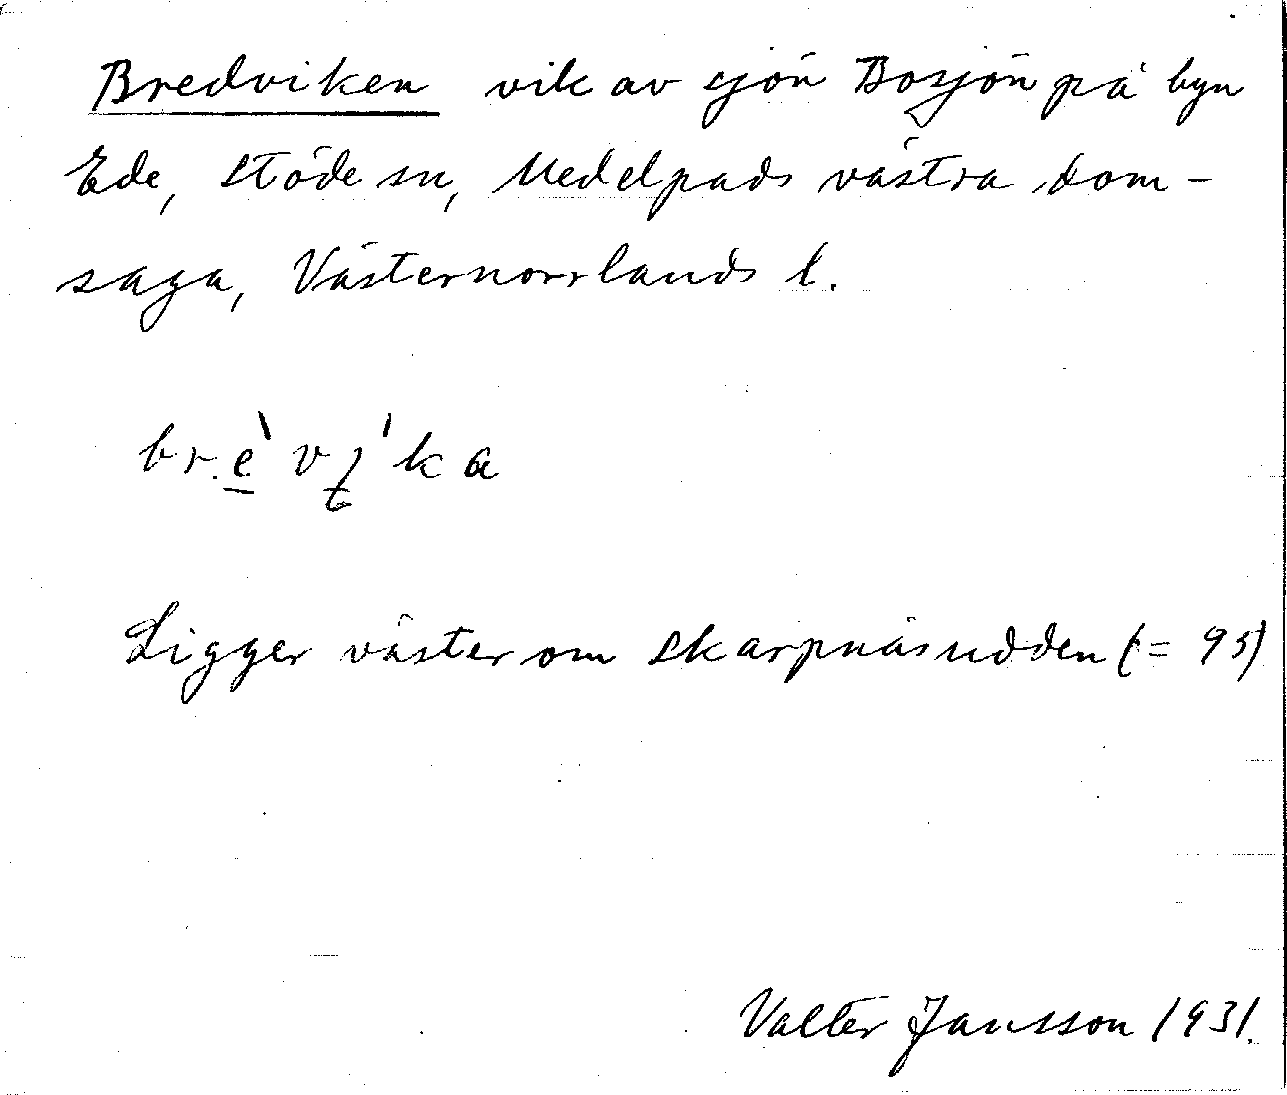 Bredviken vik av sjön Bosjön på byn
Ede, Stöde sn, Medelpads västra dom-
saga, Västernorrlands l.
bre̠`vı̠'ka
Ligger väster om Skarpnäsudden (= 95)
Valter Jansson 1931.